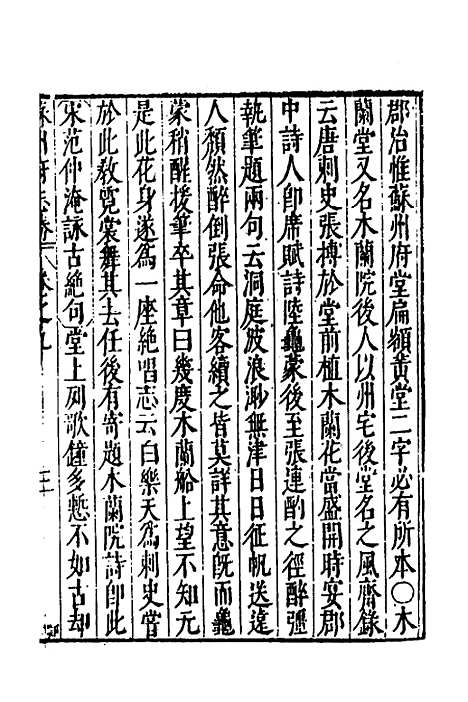 郡治惟蘇州府堂扁額黃堂二字必有所本○木
蘭堂又名木蘭院後人以州宅後堂名之風齋錄
云唐刺史張搏於堂前植木蘭花當盛開時宴郡
中詩人卽席賦詩陸龜蒙後至張連酌之徑醉彊
執筆題兩句云洞庭波浪渺無津日日征帆送遠
人頹然醉倒張命他客續之皆莫詳其意旣而龜
蒙稍醒援筆卒其章曰幾度木蘭船上望不知元
是此花身遂爲一座絶唱志云白樂天爲刺史嘗
於此敎霓裳舞其去任後有寄題木蘭院詩卽此
宋范仲淹詠古絶句堂上列歌鐘多慙不如古却
蘇州府志卷 卷之九